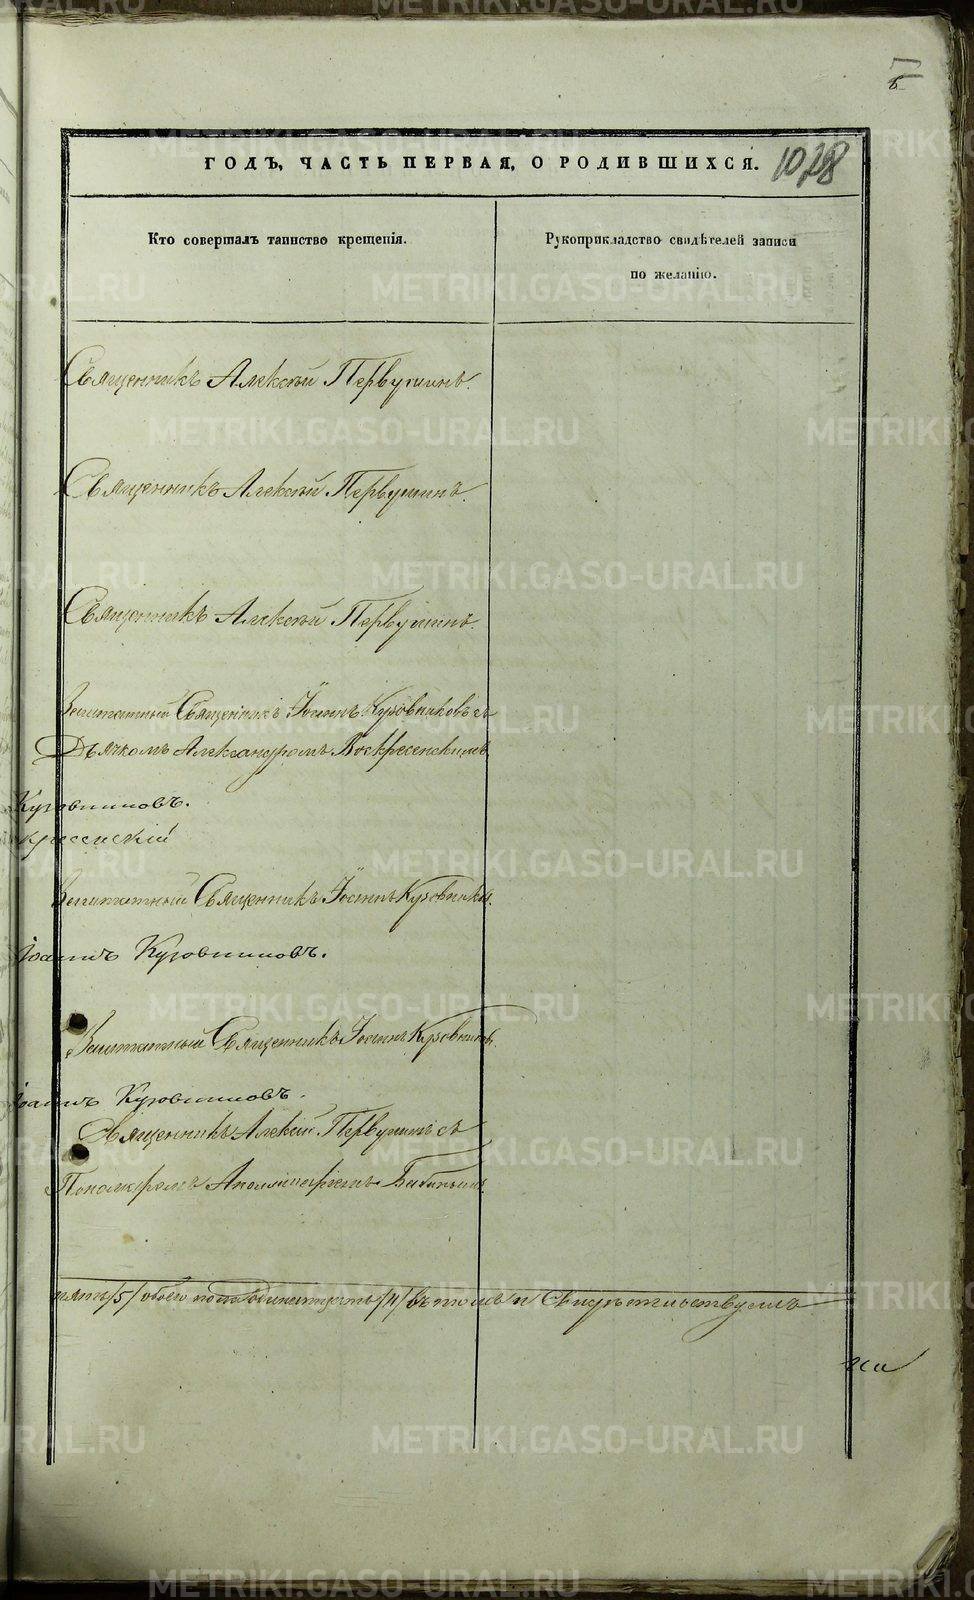 ГОДЪ, ЧАСТЬ ПЕРВАЯ, О РОДИВШИХСЯ. 1028
Кто совершалъ таинство крещенія.
Рукоприкладство свидѣтелей записи
по желанію.
Священникъ Алексѣй Первушинъ.
Священникъ Алексѣй Первушинъ.
Священникъ Алексѣй Первушинъ.
Заштатный Священникъ Іоаннъ Кузовниковъ съ
Дьячкомъ Александромъ Воскресенскимъ
Кузовниковъ.
кресенскій
Заштатный Священникъ Іоаннъ Кузовниковъ.
Іоаннъ Кузовниковъ.
Заштатный Священникъ Іоаннъ Кузовниковъ.
Іоаннъ Кузовниковъ.
Священникъ Алексѣй Первушинъ съ
Пономаремъ
пять /5/ обоего пола одинатцать /11/ въ томъ и Свидѣтельствуемъ
METRIKI.GASO-URAL.RU